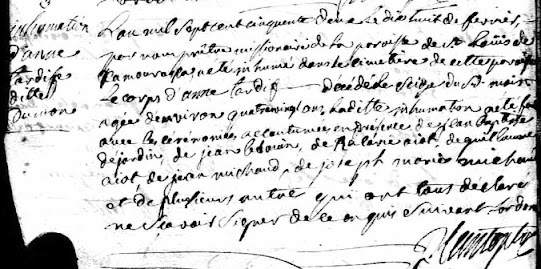 inhumation
d'anne
tardif
ditte
Dumon
Lan mil sept cent cinquente deux le dix huit de fevrier
par nous prêtre missionaire de la paroisse de st Louis de
Kamouraska a ete inhumé dans le cimetiere de cette paroisse
le corps d'anne tardif Décédé le seize du d. mois
agée denviron quatrevingt ans, laditte inhumation a ete faite
avec les cérémonies accoutumées en présence de jean baptiste
déjardin, de jean de de guillaume
aiot, de jean michaud, de joseph marie michaud
et de plusieurs autre qui ont tous déclaré
ne scavoir signer de ce enquis suivant lordon